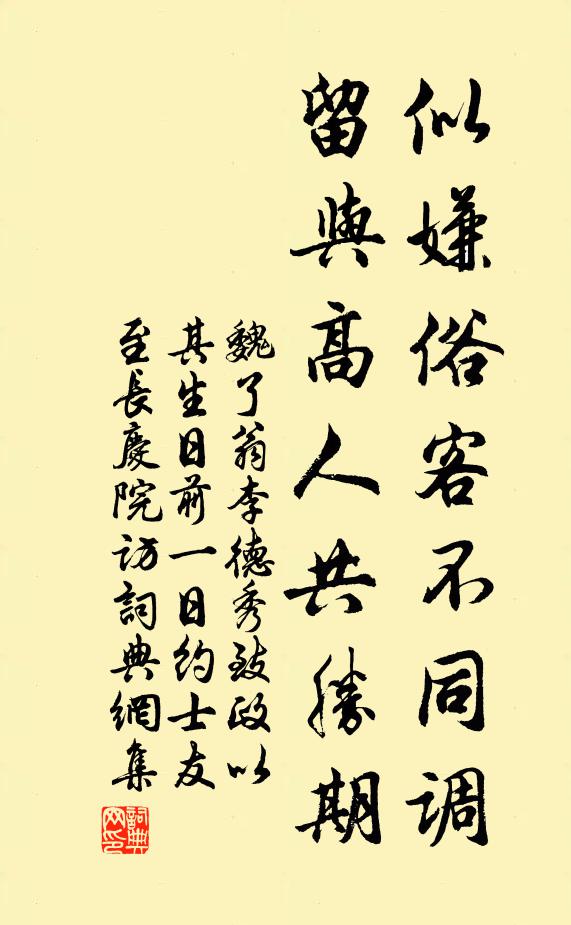 似嫌俗客不同调
留與高人共勝期
魏了翁李德秀致政以
其生日前一日约士友
至長慶院访詞典網集
詞典網印